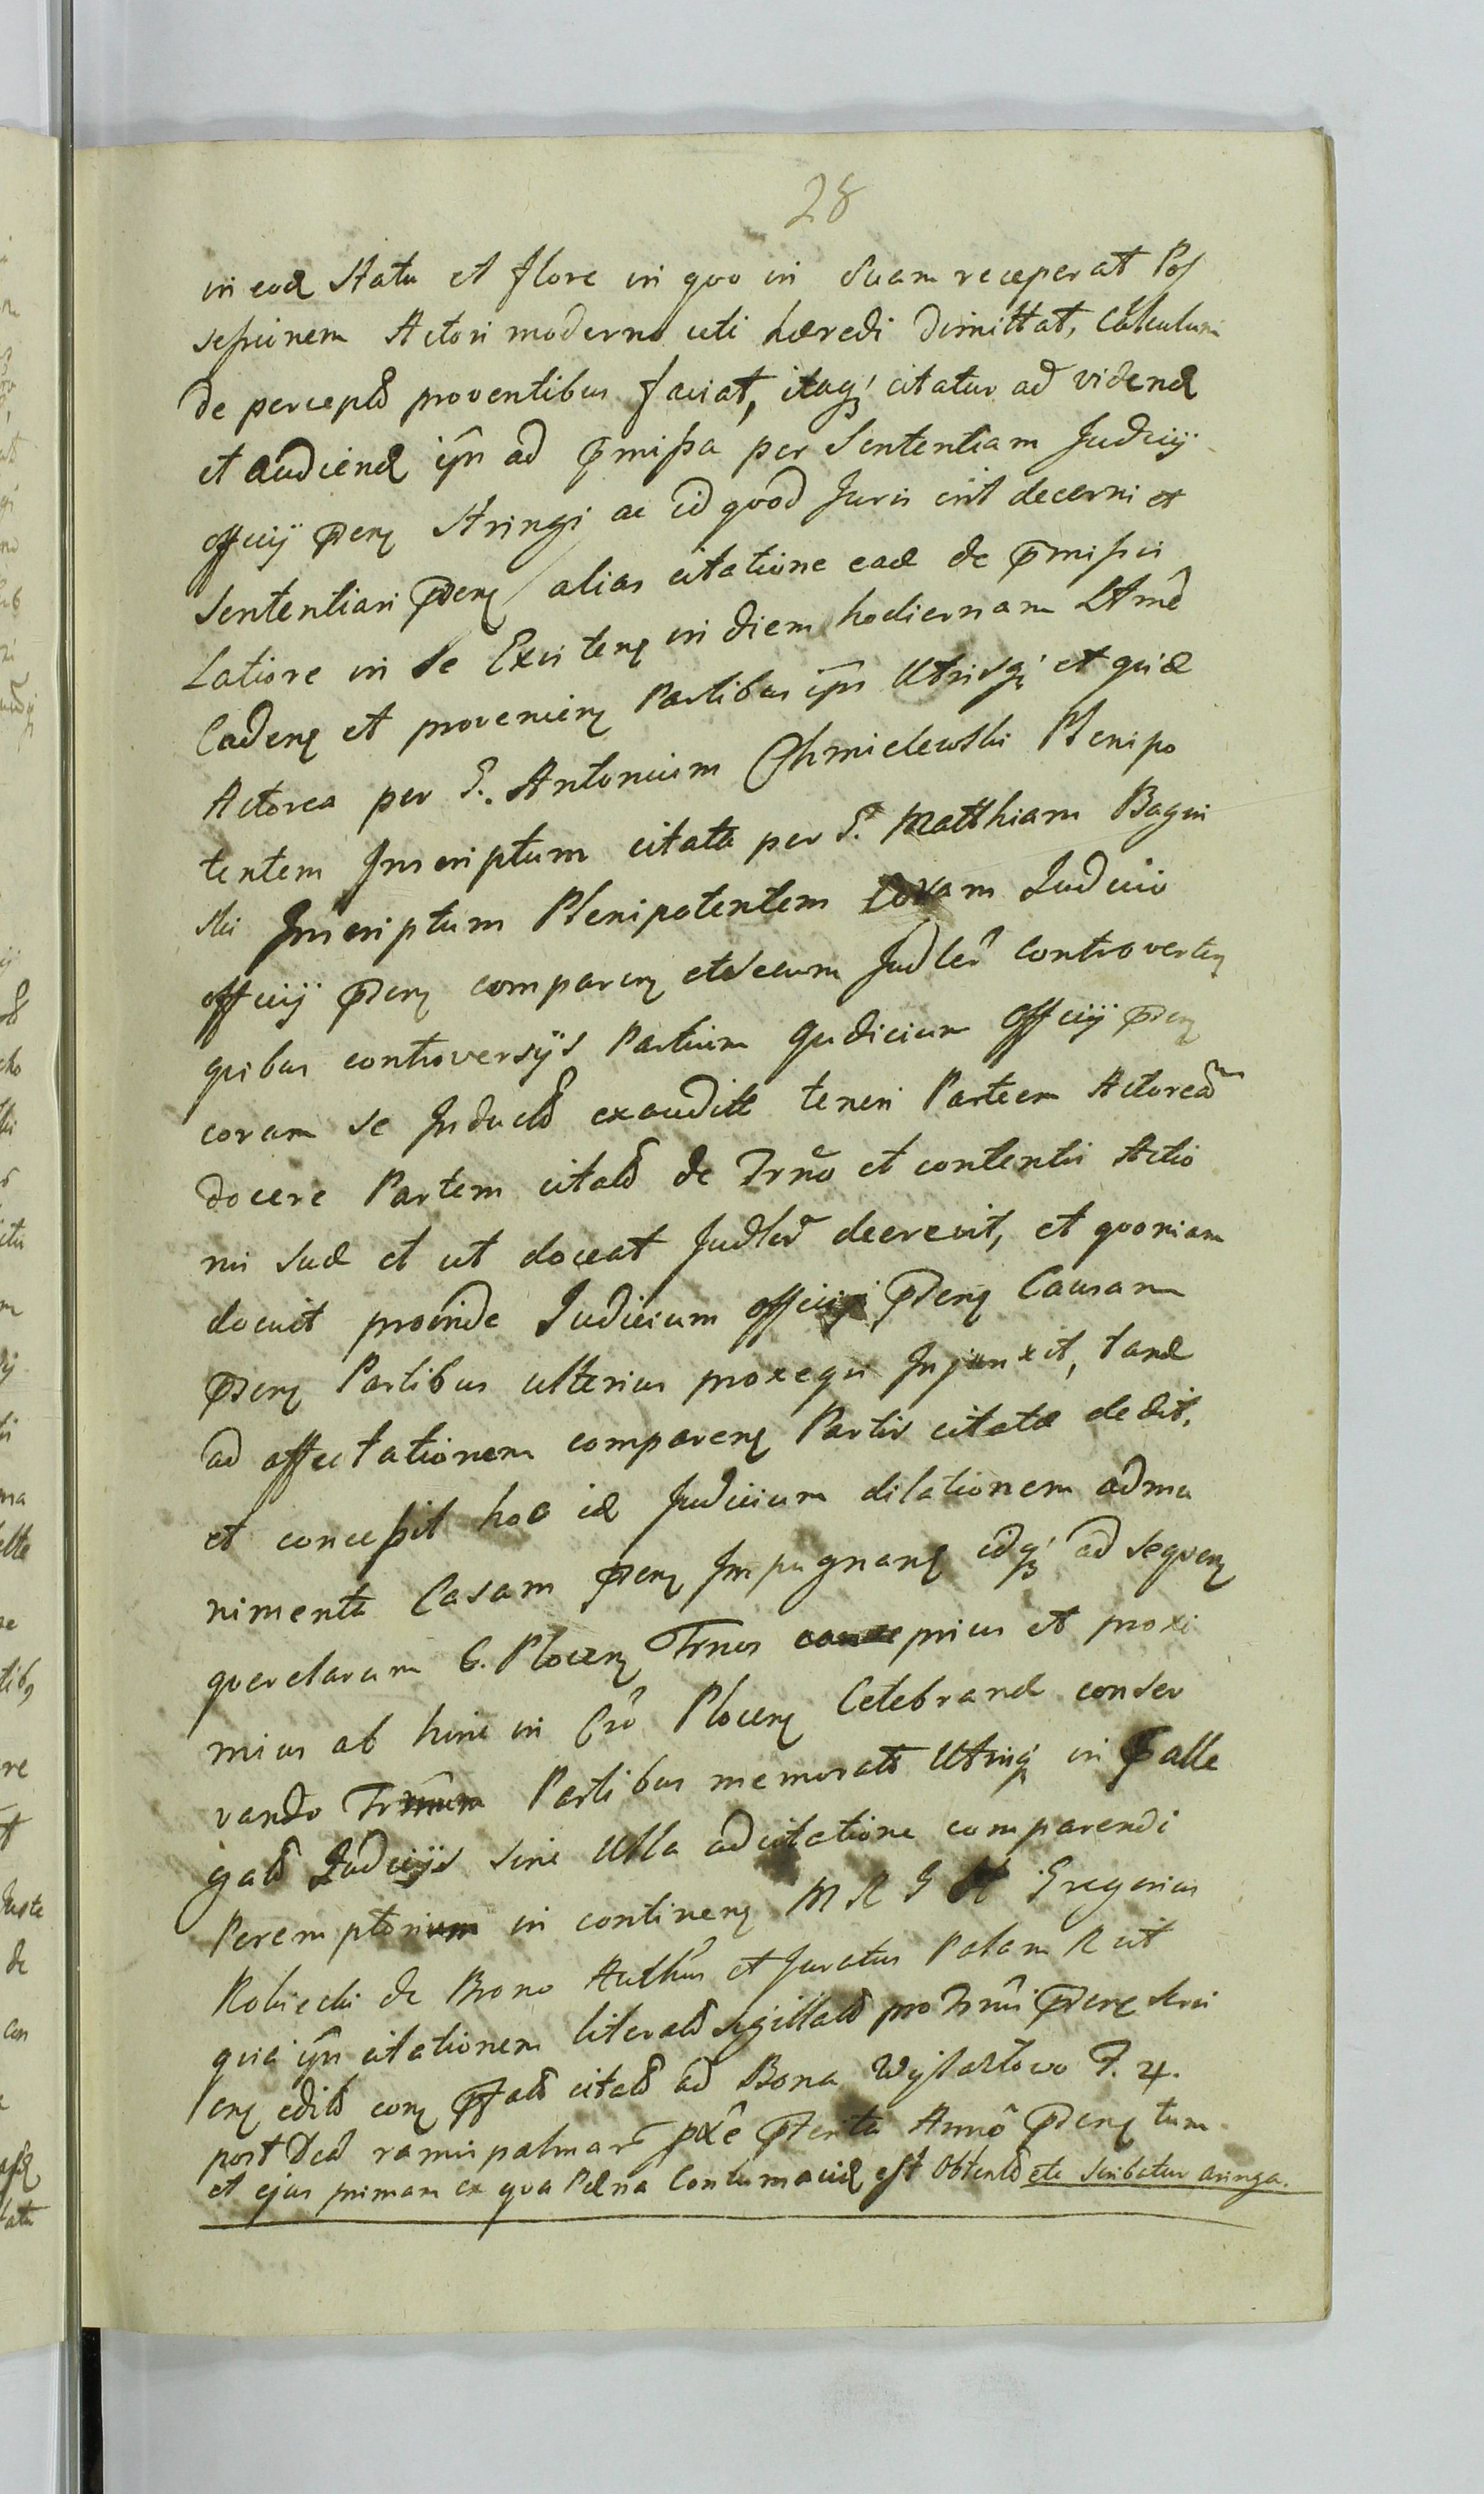 28
in eod Statu et flore in quo in Suam receperat Pos
sessionem Actori moderno uti hæredi dimittat, Calculum
de perceptis proventibus faciat, itaq citatur ad vidend
et audiend ipn ad pmissa per Sententiam Judicij
officij pden Stringi ac id quod Juris erit decerni et
Sententiari pden alias citatione ead de pmissis
Latiore in Se Existen in diem hodiernam Ltme
Caden et provenien Partibus ipn Utrisq et quid
Actorea per G. Antonium Chmielewski Plenipo
tentem Inscriptum citata per G. Matthiam Bagin
ski Inscriptum Plenipotentem coram Judicio
officij pden comparen et Secum Judler controverten
quibus controversijs Partium Judicium officij pden
coram se Inductis exauditis teneri Partem Actoream
docere Partem citatam de Trno et contentis Actio
nis Suæ et ut doceat Judler decrevit, et quoniam
docuit proinde Judicium officij pden Causam
pden Partibus ulterius proxequi Injunxit, tand
ad affectationem comparen Partis citatæ dedit,
et concessit hoc id Judicium dilationem ad mu
nimenta Casam pden Impugnan idq ad sequen
querelarum C. Plocen Trnos prius et proxi
mius ab hinc in Cro Plocen Celebrand conser
vando Trnum Partibus memoratis Utrinq in palle
gatis Judicijs sine Ulla adcitatione comparendi
Peremptorium in continen M R G Gregorius
Robiecki de Brono Authus et Juratus Palam R cit
quia ipn citationem literatam sigillatam pro Trni pden
en editam con pfatam citatam ad Bona Wyszałtowo F. 4.
post Dcam ramis palmar pxe pterita Anno pden tum
et ejus primam ex qua Pæna Contumaciæ est obtenta etc Scribatur aringa.